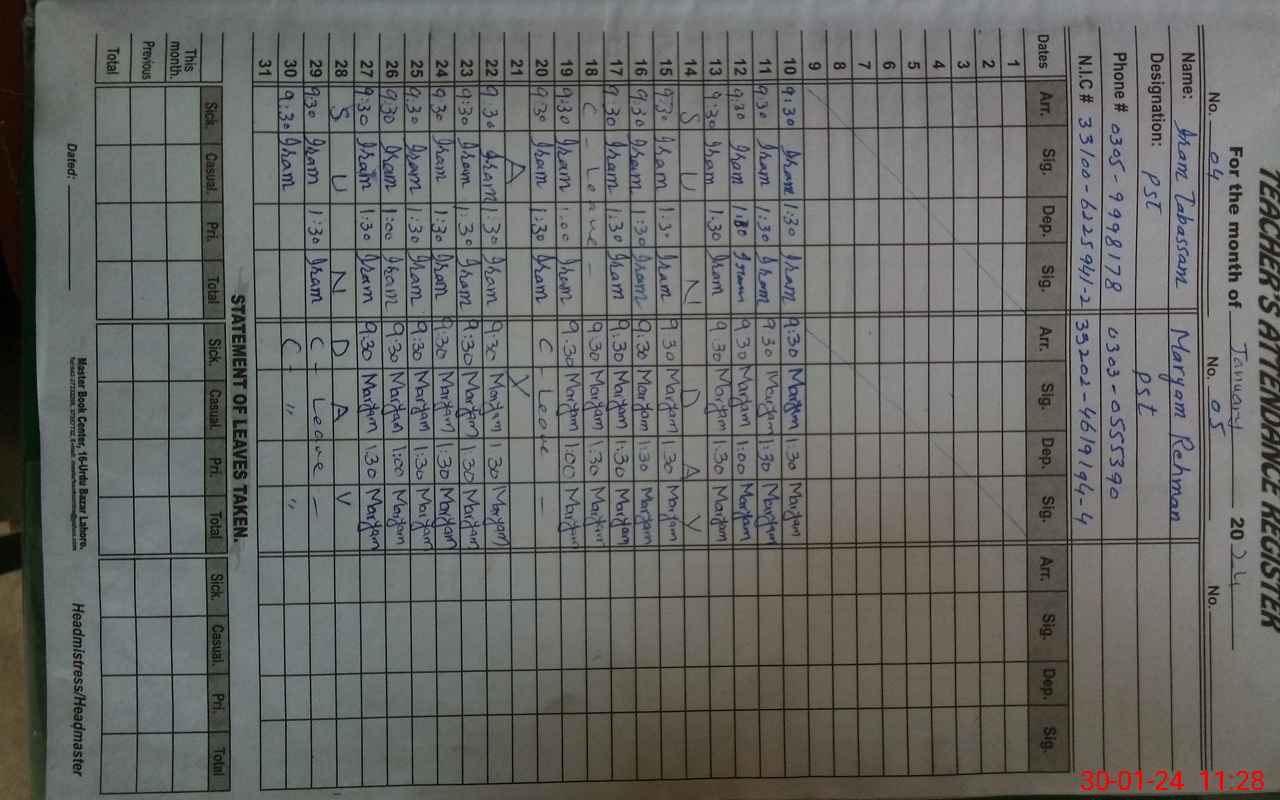 TEACHER'S ATTENDANCE REGISTER
For the month of January 2024
No. 04 No. 05 No.
Name: Iram Tabassam Maryam Rehman
Designation: PST PST
Phone # 0305-9998178 0303-0555390
N.I.C # 33100-6225941-2 33202-4619194-4
Dates Arr. Sig. Dep. Sig. Arr. Sig. Dep. Sig. Arr. Sig. Dep. Sig.
1
2
3
4
5
6
7
8
9
10 9:30 Iram 1:30 Iram 9:30 Maryam 1:30 Maryam
11 9:30 Iram 1:30 Iram 9:30 Maryam 1:30 Maryam
12 9:30 Iram 1:30 Iram 9:30 Maryam 1:00 Maryam
13 9:30 Iram 1:30 Iram 9:30 Maryam 1:30 Maryam
14 S U N D A Y
15 9:30 Iram 1:30 Iram 9:30 Maryam 1:30 Maryam
16 9:30 Iram 1:30 Iram 9:30 Maryam 1:30 Maryam
17 9:30 Iram 1:30 Iram 9:30 Maryam 1:30 Maryam
18 C - Leave - 9:30 Maryam 1:30 Maryam
19 9:30 Iram 1:00 Iram 9:30 Maryam 1:00 Maryam
20 9:30 Iram 1:30 Iram C - Leave -
21 A Y
22 9:30 Iram 1:30 Iram 9:30 Maryam 1:30 Maryam
23 9:30 Iram 1:30 Iram 9:30 Maryam 1:30 Maryam
24 9:30 Iram 1:30 Iram 9:30 Maryam 1:30 Maryam
25 9:30 Iram 1:30 Iram 9:30 Maryam 1:30 Maryam
26 9:30 Iram 1:00 Iram 9:30 Maryam 1:00 Maryam
27 9:30 Iram 1:30 Iram 9:30 Maryam 1:30 Maryam
28 S U N D A Y
29 9:30 Iram 1:30 Iram C - Leave -
30 9:30 Iram C - " "
31
STATEMENT OF LEAVES TAKEN.
Sick. Casual. Pri. Total Sick. Casual. Pri. Total Sick. Casual. Pri. Total
This month.
Previous
Total
Dated: Master Book Center, 16-Urdu Bazar Lahore. Headmistress/Headmaster
30-01-24 11:28